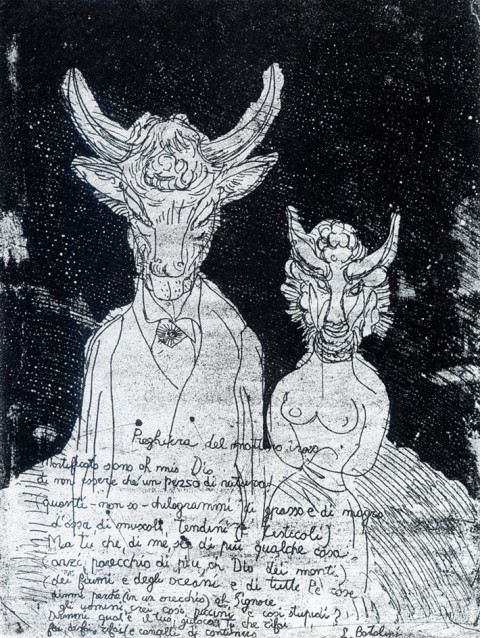 Preghiera del mattino
Mortificato sono oh mio Dio
di non essere che un pezzo di natura
(quanti - non so - chilogrammi di grasso e di magro
d'ossa, di muscoli tendini e testicoli)
Ma tu che, di me, sei di più qualche cosa
(anzi, parecchio di più, oh Dio dei monti)
(dei fiumi e degli oceani e di tutte le cose
dimmi perché (in un orecchio) oh Signore
gli uomini crei così piccini e così stupidi?
Dimmi qual'è il tuo giuoco te che
e cavalli di continuo
L. Bartolini